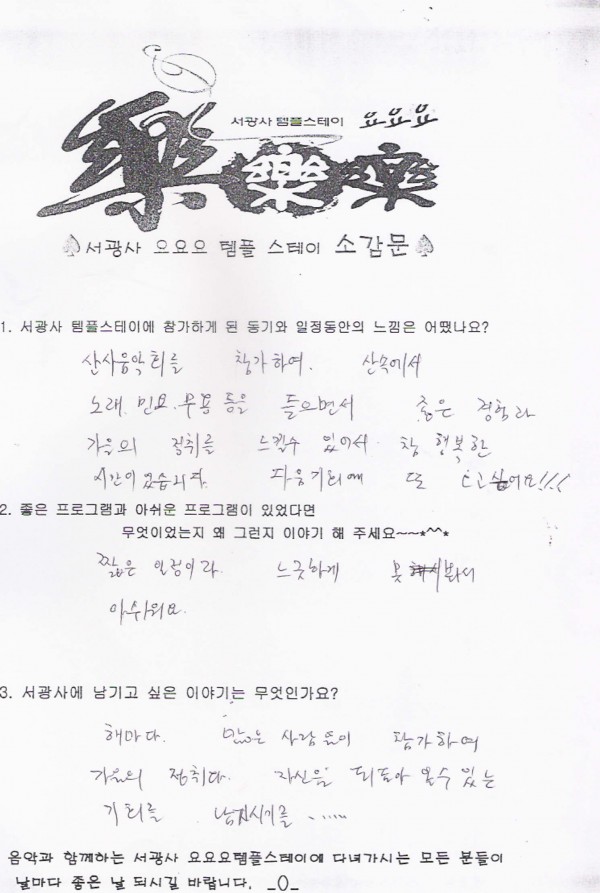 서광사 템플스테이 요요요
樂 樂 樂
서광사 요요요 템플 스테이 소감문
1. 서광사 템플스테이에 참가하게 된 동기와 일정동안의 느낌은 어땠나요?
산사음악회를 참가하여. 산속에서
노래. 민요. 무용 등을 들으면서 좋은 경험과
가을의 정취를 느낄수 있어서 참 행복한
시간이었습니다. 다음기회에 또 오고싶어요!!!
2. 좋은 프로그램과 아쉬운 프로그램이 있었다면
무엇이었는지 왜 그런지 이야기 해 주세요~~*^^*
짧은 일정이라. 느긋하게 못 해봐서
아쉬워요.
3. 서광사에 남기고 싶은 이야기는 무엇인가요?
해마다. 많은 사람들이 참가하여
가을의 정취다. 자신을 되돌아 올수 있는
기회를 남기시기를 ......
음악과 함께하는 서광사 요요요템플스테이에 다녀가시는 모든 분들이
날마다 좋은 날 되시길 바랍니다. _()_